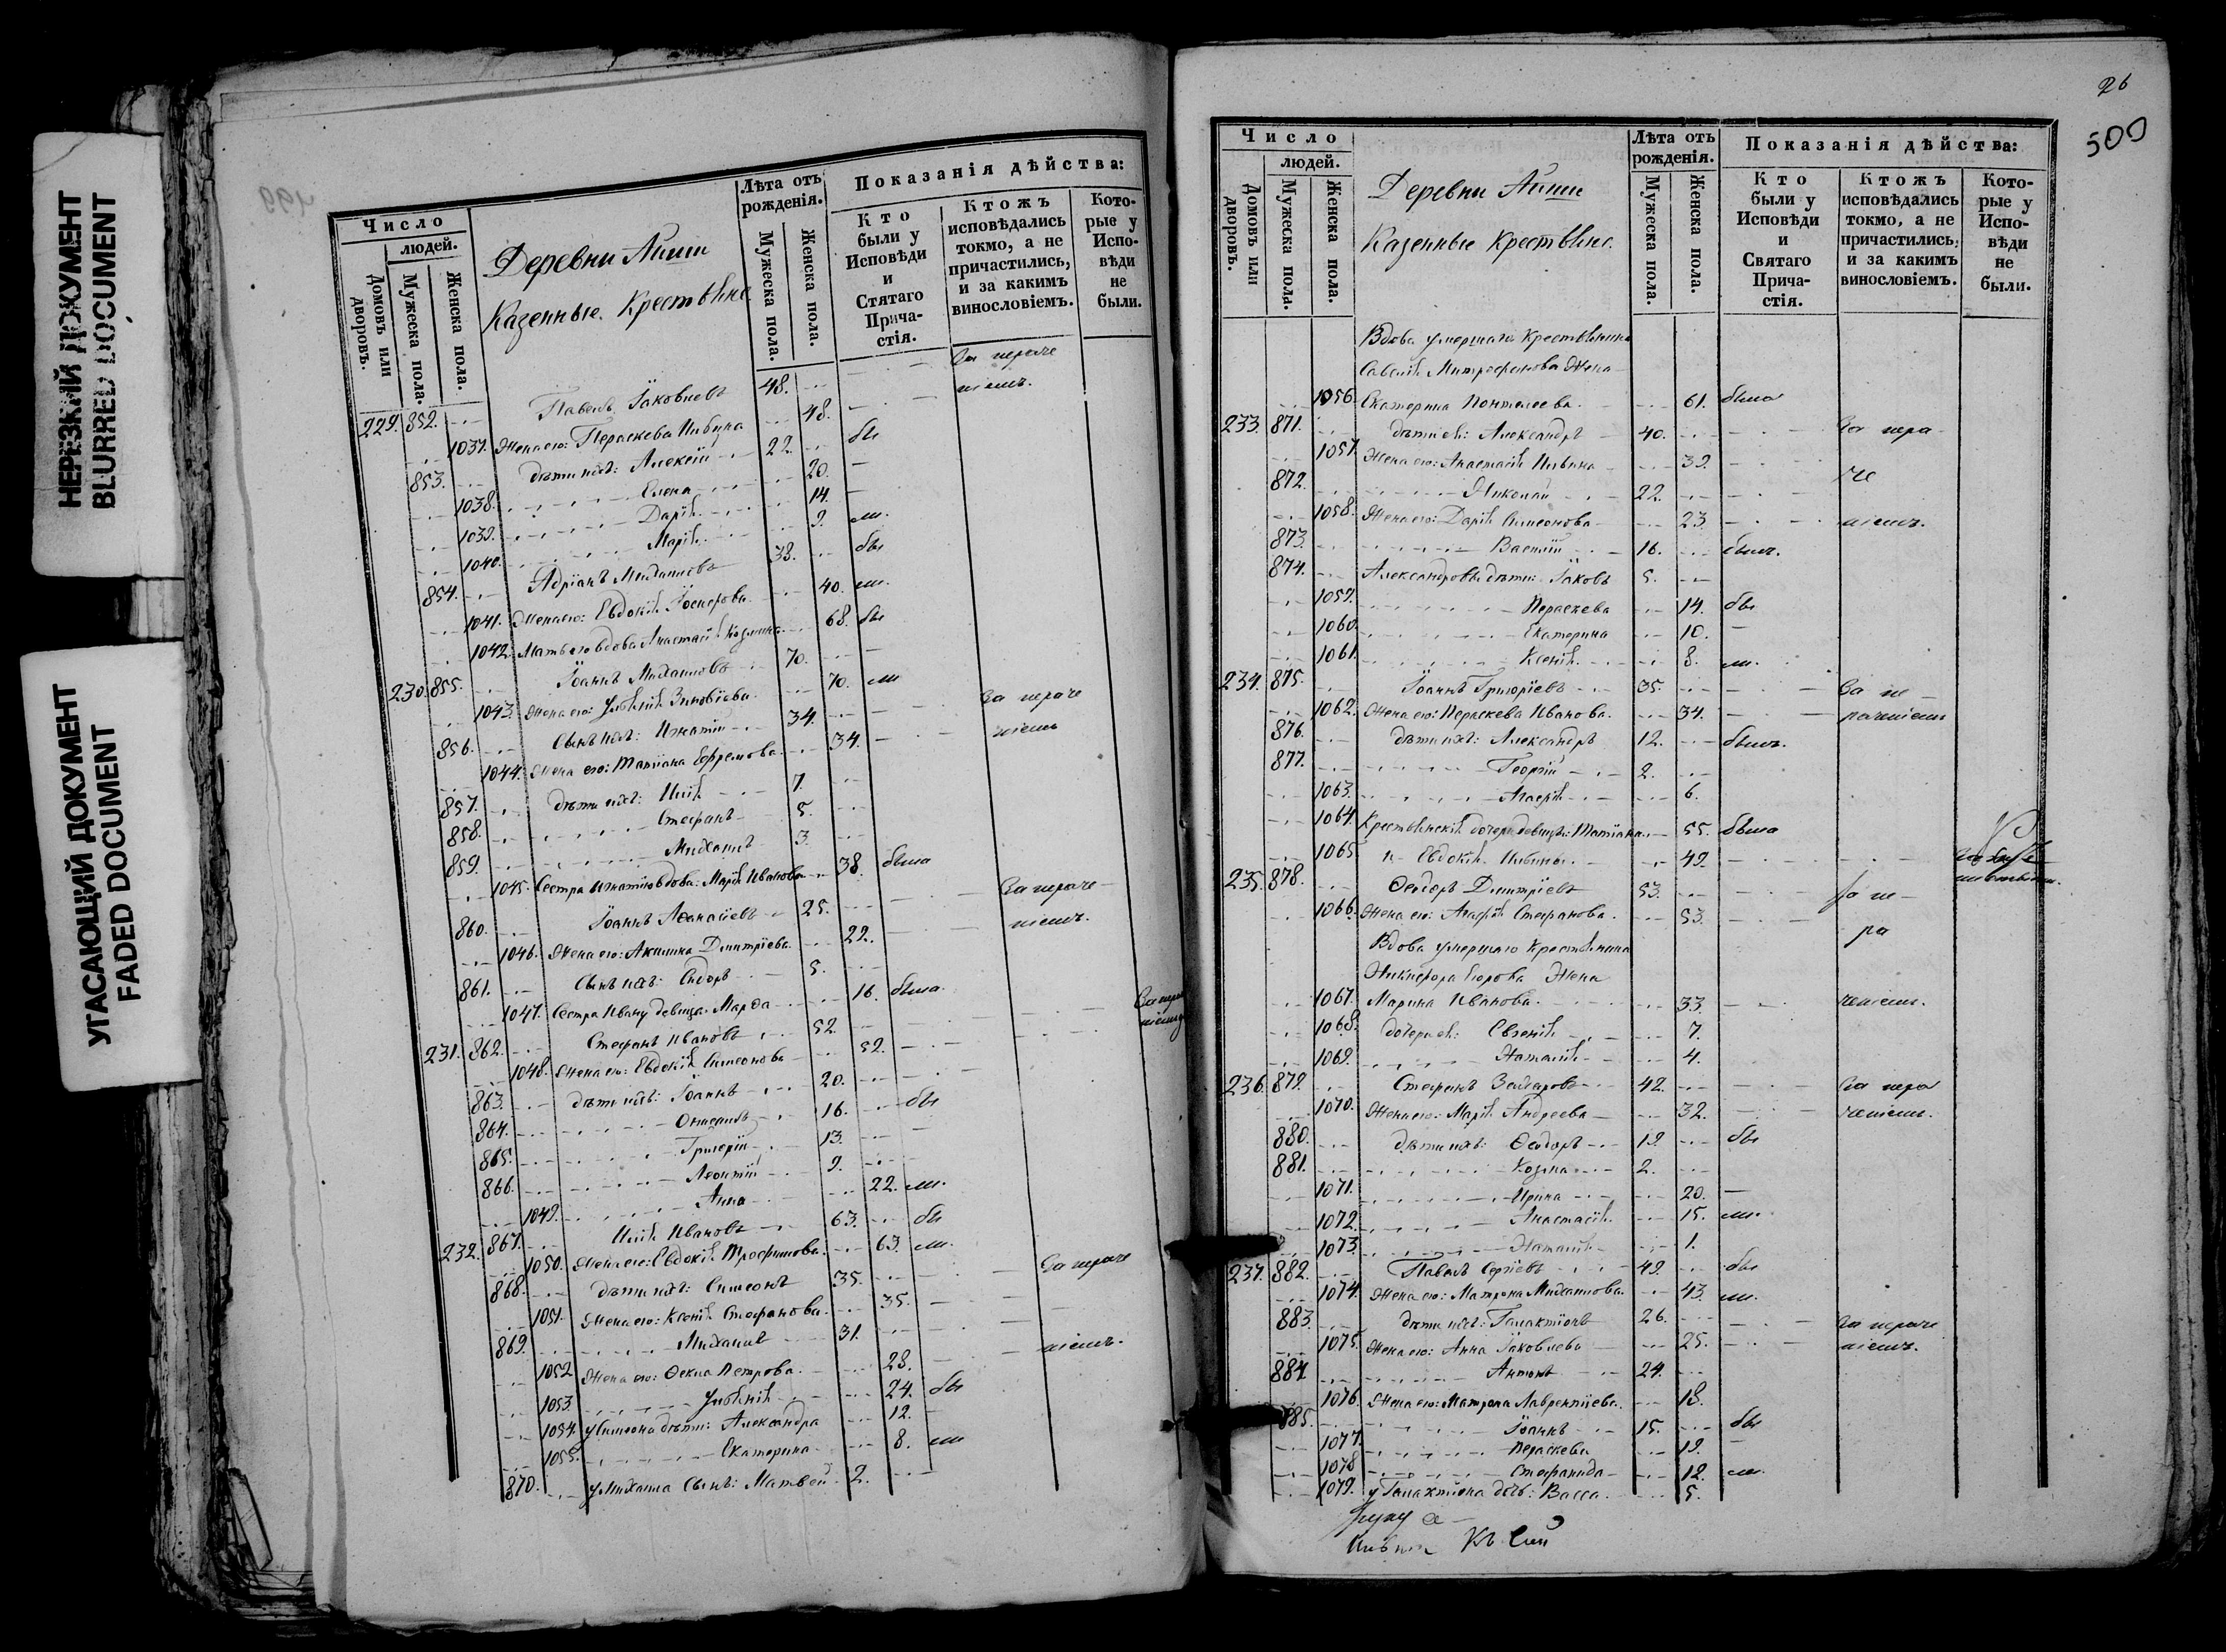 НЕРЕЗКИЙ ДОКУМЕНТ
BLURRED DOCUMENT
УГАСАЮЩИЙ ДОКУМЕНТ
FADED DOCUMENT
499
Число
людей.
Домовъ или дворовъ.
Мужеска пола.
Женска пола.
Деревни Аиши
Казенные Крестьяне
Лѣта отъ рожденія.
Мужеска пола.
Женска пола.
Показанія дѣйства:
Кто были у Исповѣди и Стятаго Причастія.
Ктожъ исповѣдались токмо, а не причастились, и за какимъ винословіемъ.
Которые у Исповѣди не были.
229. 852. Павелъ Іаковлевъ 48. За нераче
1037. Жена его: Пераскева Ильина 48. ніемъ.
853. дѣти ихъ: Алексій 22. бы
1038. Елена 20.
1039. Дарія 14.
1040. Марія 9. ли.
854. Адріанъ Михаиловъ 38. бы
1041. Жена его: Евдокія 40. ли.
1042. Мать его вдова Анастасія Козмина 68. бы
230. 855. Іоаннъ Михаиловъ 70.
1043. Жена его: Уліянія Зиновіева 70. ли
856. Сынъ ихъ: Игнатій 34. За нераче
1044. Жена его: Татіана Ефремова 34. ніемъ
857. дѣти ихъ: Илія 7.
858. Стефанъ 5.
859. Михаилъ 3.
1045. Сестра Игнатію вдова: Марія Иванова 38. была
860. Іоаннъ Аѳанасіевъ 25. За нераче
1046. Жена его: Акилина Димитріева 22. ніемъ.
861. Сынъ ихъ: Сидоръ 5.
1047. Сестра Ивану девица: Марѳа 16. была.
231. 862. Стефанъ Ивановъ 52.
1048. Жена его: Евдокія Симеонова 52.
863. дѣти ихъ: Іоаннъ 20.
864. 16. бы
865. Григорій 13.
866. Леонтій 9.
1049. Анна 22. ли.
232. 867. Илія Ивановъ 63. бы
1050. Жена его: Евдокія Трофимова 63. ли.
868. дѣти ихъ: Симеонъ 35. За нераче
1051. Жена его: Ксенія Стефанова 35.
869. Михаилъ 31. ніемъ.
1052 Жена его: Ѳекла Петрова 28.
1053. Уліянія 24. бы
1054. у Симеона дѣти: Александра 12.
1055. Екатерина 8. ли
870. у Михаила Сынъ: Матвей 2.
26
500
Число
людей.
Домовъ или дворовъ.
Мужеска пола.
Женска пола.
Деревни Аиши
Казенные Крестьяне.
Лѣта отъ рожденія.
Мужеска пола.
Женска пола.
Показанія дѣйства:
Кто были у Исповѣди и Святаго Причастія.
Ктожъ исповѣдались токмо, а не причастились, и за какимъ винословіемъ.
Которые у Исповѣди не были.
Вдова умершаго Крестьянина
Савелія Митрофанова Жена
1056. Екатерина Понтелеева 61. была
233. 871. дѣти ея: Александръ 40. За нера
1057. Жена его: Анастасія Ильина 39.
872. Николай 22. че
1058. Жена его: Дарія Симеонова 23. ніемъ.
873. 16. былъ.
874. Александровы дѣти: Іаковъ 5.
1059. Пераскева 14. бы
1060. Екатерина 10.
1061. Ксенія 8. ли.
234. 875. Іоаннъ Григоріевъ 35. За не
1062. Жена его: Пераскева Иванова 34. раченіемъ
876. дѣти ихъ: Александръ 12. былъ.
877. Георгій 2.
1063. Агафія 6.
1064. Крестьянскія дочери девицы: Татіана 55. была
1065 и Евдокія Ильины 49.
235. 878. Ѳеодоръ Димитріевъ 53. за не
1066. Жена его: Агафія Стефанова 53. ра
Вдова умершаго Крестьянина
Никифора Жена
1067. Марина Иванова 33. ченіемъ.
1068. дочери ея: Евгенія 7.
1069. Наталія 4.
236. 879. Стефанъ Захаровъ 42. За нера
1070. Жена его: Марія Андреева 32. ченіемъ.
880. дѣти ихъ: Ѳеодоръ 19. бы
881. Козма 2.
1071. Ирина 20.
1072. Анастасія 15. ли.
1073. Наталія 1.
237. 882. Павелъ Сергіевъ 49. бы
1074. Жена его: Матрона Михаилова 43. ли.
883. дѣти ихъ: Галактіонъ 26. За нераче
1075. Жена его: Анна Іаковлева 25. ніемъ.
884 Антонъ 24.
1076. Жена его: Матрона Лаврентіева 18.
885. Іоаннъ 15. бы
1077. Пераскева 19.
1078 Стефанида 12. ли.
1079. у Галактіона дочь: Васса 5.